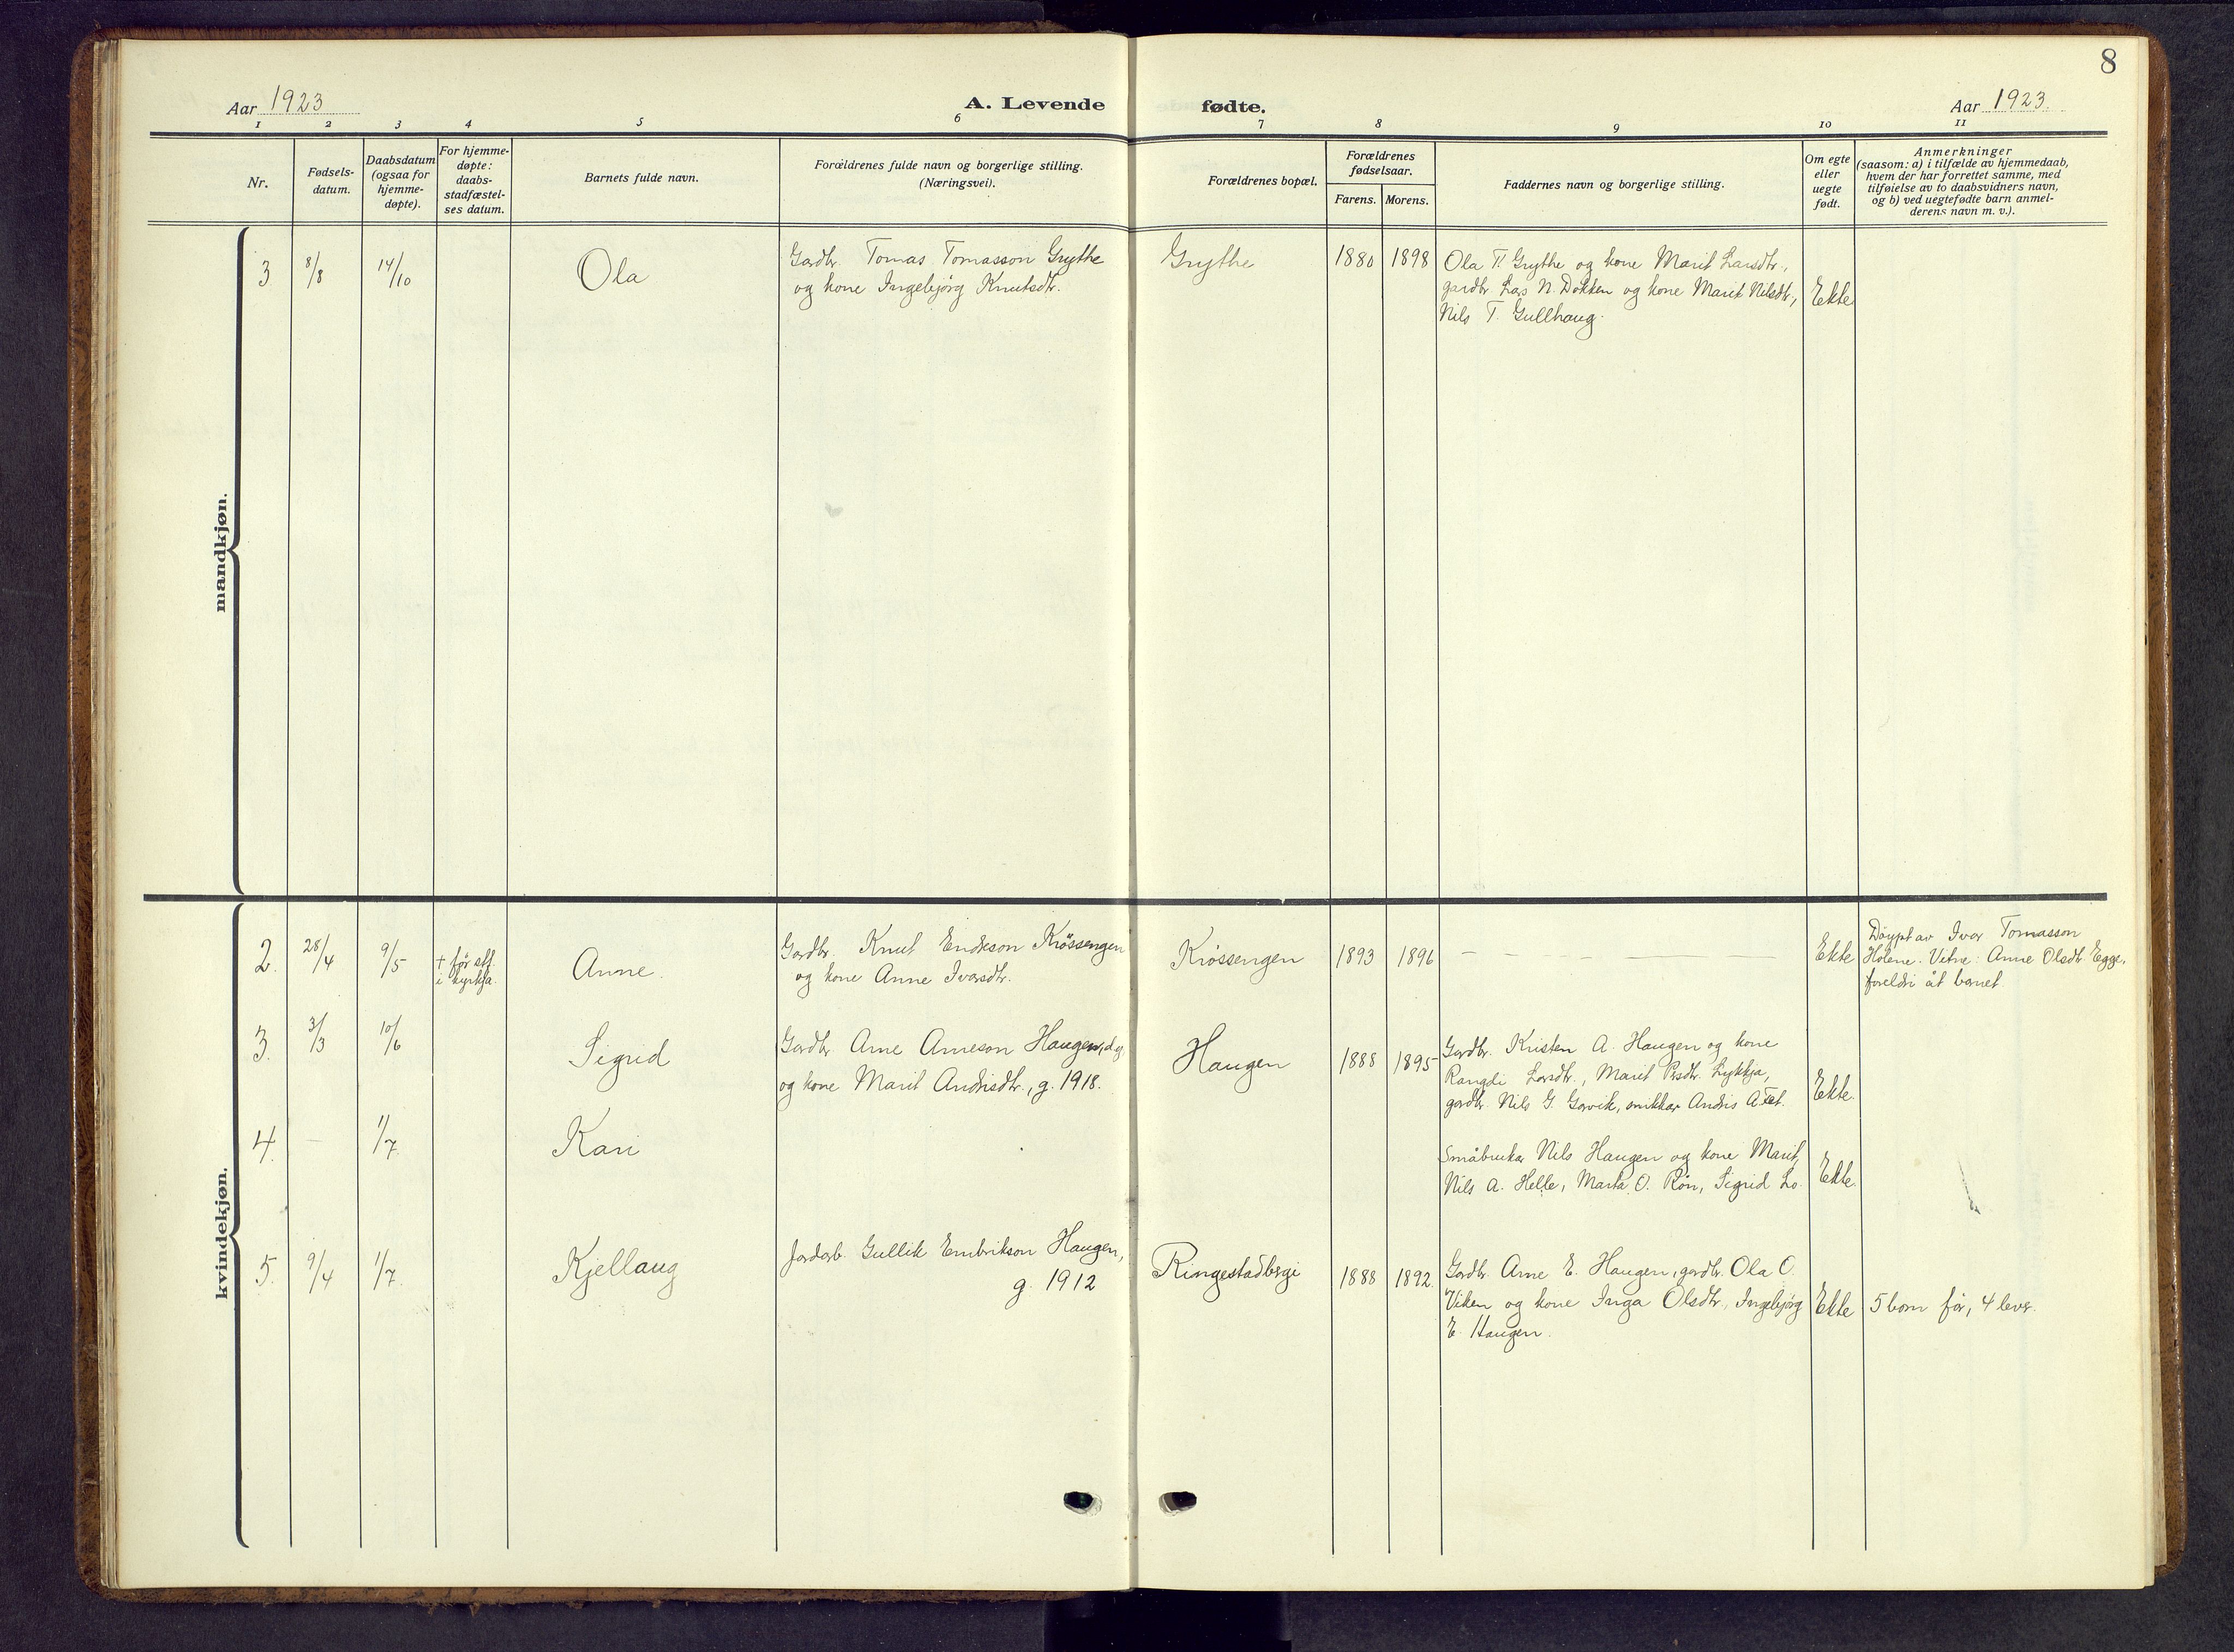 8
Aar 1923
A. Levende fødte.
Aar 1923.
1 2 3 4 5 6 7 8 9 10 11
Nr.
Fødsels-
datum.
Daabsdatum
(ogsaa for
hjemme-
døpte).
For hjemme-
døpte:
daabs-
stadfæstel-
ses datum.
Barnets fulde navn.
Forældrenes fulde navn og borgerlige stilling.
(Næringsvei).
Forældrenes bopæl.
Forældrenes
fødselsaar.
Farens. Morens.
Faddernes navn og borgerlige stilling.
Om egte
eller
uegte
født.
Anmerkninger
(saasom: a) i tilfælde av hjemmedaab,
hvem der har forrettet samme, med
tilføielse av to daabsvidners navn,
og b) ved uegtefødte barn anmel-
derens navn m. v.).
mandkjøn.
3 8/8 14/10 Ola
Gardbr. Tomas Tomasson Grythe
og kone Ingebjörg Knutsdtr.
Grythe 1880 1898
Ola T. Grythe og kone Marit Larsdtr.,
gardbr. Lars N. Dokken og kone Marit Nilsdtr.,
Nils T. Gullhaug.
Ekte
kvindekjøn.
2. 28/4 9/5
† før stf.
i kyrkja.
Anne.
Gardbr. Knut Endreson Krössengen
og kone Anne Ivarsdtr.
Krössengen 1893 1896
Ekte
Döypt av Ivar Tomasson
Holene. Vitne: Anne Olsdtr. Egge,
foreldri åt barnet.
3. 3/3 10/6 Sigrid
Gardbr. Arne Arneson Haugen, d.y.
og kone Marit Andrisdtr., g. 1918.
Haugen 1888 1895
Gardbr. Kristen A. Haugen og kone
Rangdi Larsdtr., Marit Persdtr. Lykkja,
gardbr. Nils G. Garvik, snikkar Andris A.
Ekte.
4. — 1/7 Kari
Småbrukar Nils Haugen og kone Marit,
Nils A. Helle, Marta O. Rön, Sigrid Lo.
Ekte.
5. 9/4 1/7. Kjellaug
Jordarb. Gullik Embrikson Haugen,
g. 1912
Ringestadbergi 1888 1892.
Gardbr. Arne E. Haugen, gardbr. Ola O.
Viken og kone Inga Olsdtr., Ingebjörg
E. Haugen.
Ekte
5 born för, 4 lever.